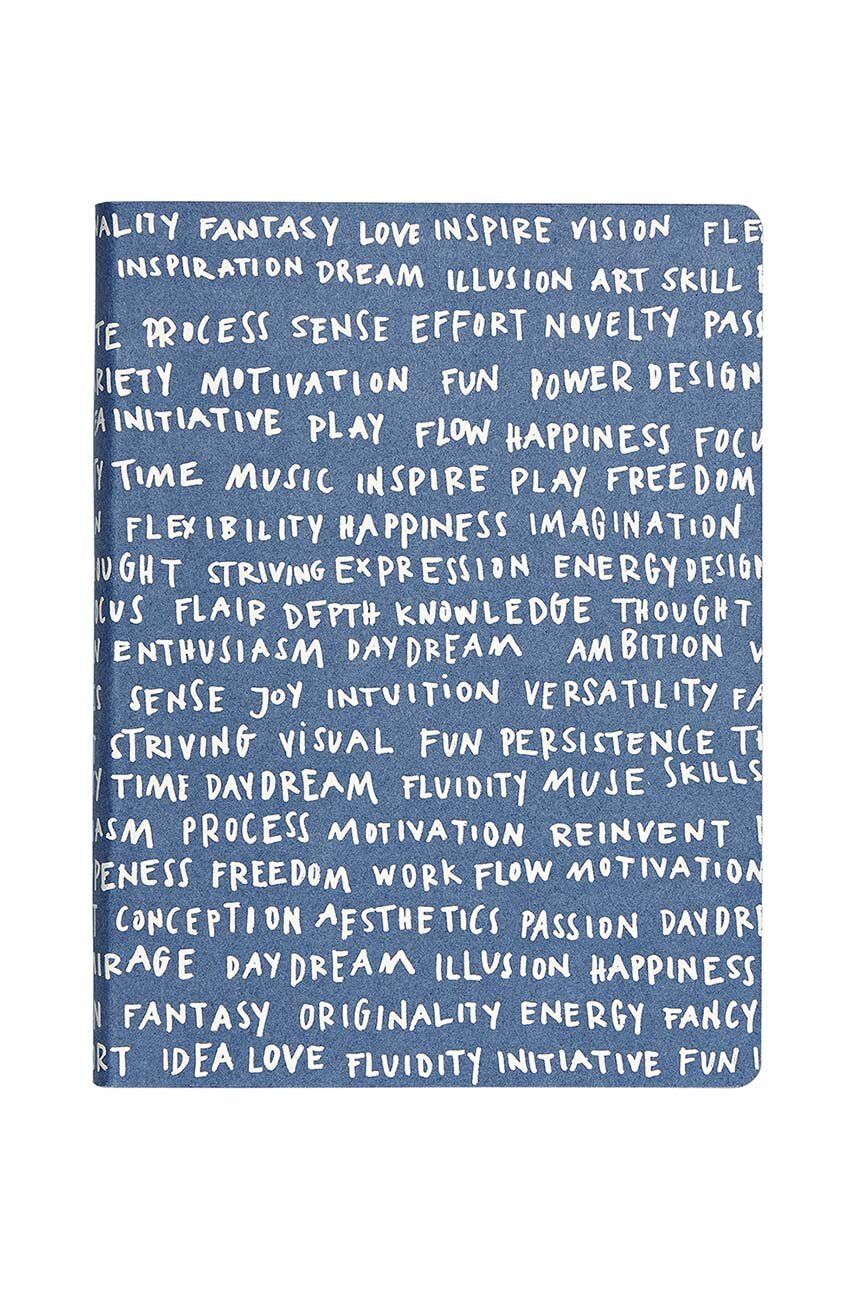 NALITY FANTASY LOVE INSPIRE VISION FLE
INSPIRATION DREAM ILLUSION ART SKILL
TE PROCESS SENSE EFFORT NOVELTY PASS
RIETY MOTIVATION FUN POWER DESIGN
EA INITIATIVE PLAY FLOW HAPPINESS FOCU
TY TIME MUSIC INSPIRE PLAY FREEDOM
N FLEXIBILITY HAPPINESS IMAGINATION
OUGHT STRIVING EXPRESSION ENERGY DESIGN
OCUS FLAIR DEPTH KNOWLEDGE THOUGHT
ENTHUSIASM DAYDREAM AMBITION V
S SENSE JOY INTUITION VERSATILITY FA
STRIVING VISUAL FUN PERSISTENCE TI
Y TIME DAYDREAM FLUIDITY MUSE SKILLS
ASM PROCESS MOTIVATION REINVENT
PENESS FREEDOM WORK FLOW MOTIVATION
T CONCEPTION AESTHETICS PASSION DAYDRE
IRAGE DAYDREAM ILLUSION HAPPINESS
N FANTASY ORIGINALITY ENERGY FANCY
RT IDEA LOVE FLUIDITY INITIATIVE FUN I